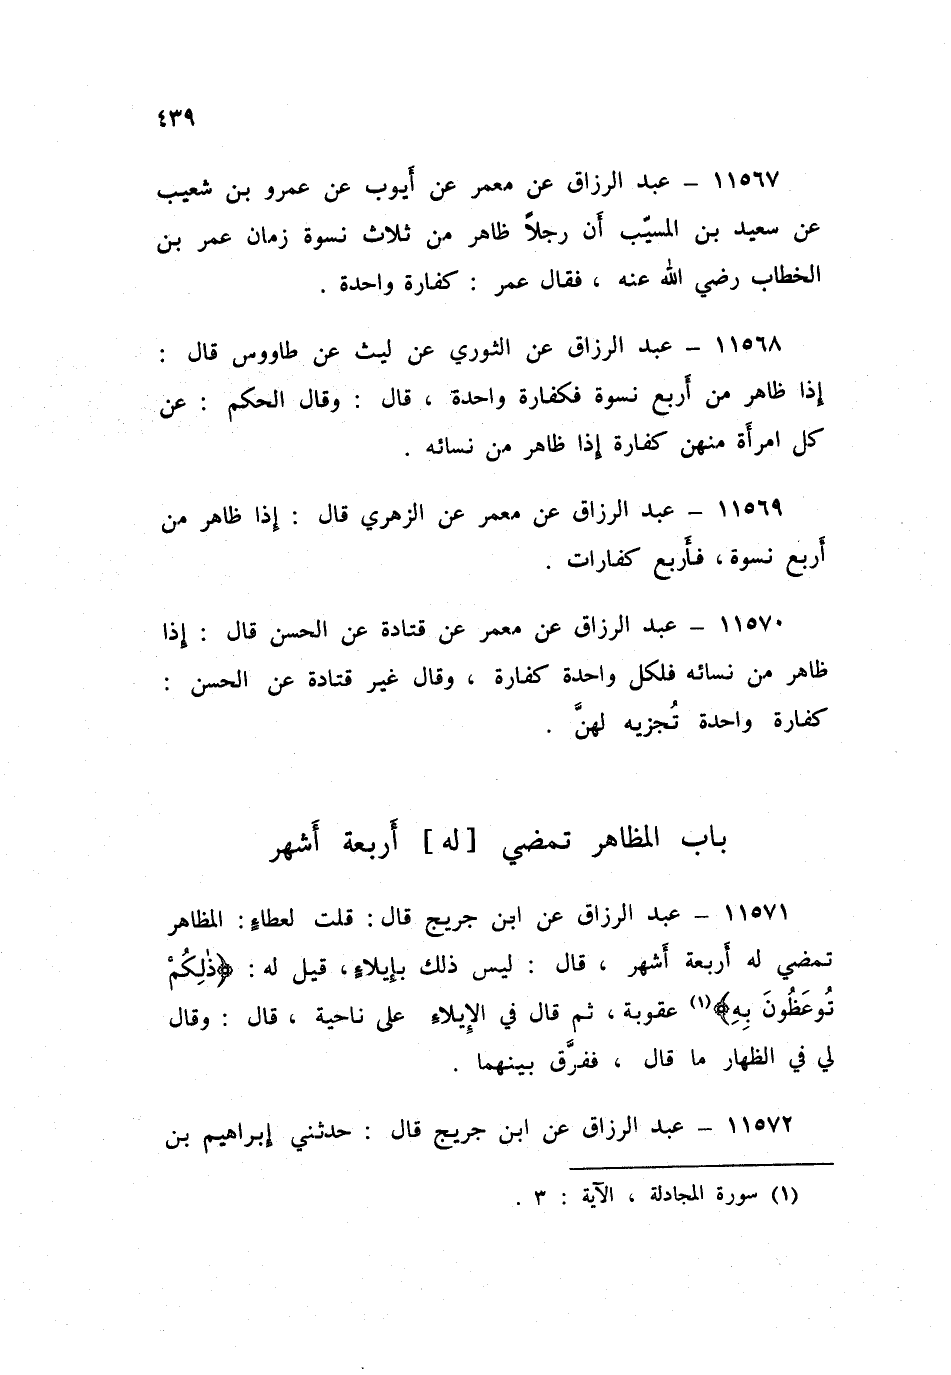 ٤٣٩
١١٥٦٧ – عبد الرزاق عن معمر عن أَيوب عن عمرو بن شعيب
عن سعيد بن المسيّب أَن رجلاً ظاهر من ثلاث نسوة زمان عمر بن
الخطاب رضي الله عنه ، فقال عمر : كفارة واحدة .
١١٥٦٨ – عبد الرزاق عن الثوري عن ليث عن طاووس قال :
إِذا ظاهر من أَربع نسوة فكفارة واحدة ، قال : وقال الحكم : عن
كل امرأَة منهن كفارة إِذا ظاهر من نسائه .
١١٥٦٩ – عبد الرزاق عن معمر عن الزهري قال : إِذا ظاهر من
أَربع نسوة ، فأَربع كفارات .
١١٥٧٠ – عبد الرزاق عن معمر عن قتادة عن الحسن قال : إِذا
ظاهر من نسائه فلكل واحدة كفارة ، وقال غير قتادة عن الحسن :
كفارة واحدة تُجزيه لهنَّ .
باب المظاهر تمضي [له] أَربعة أَشهر
١١٥٧١ – عبد الرزاق عن ابن جريج قال : قلت لعطاءٍ : المظاهر
تمضي له أَربعة أَشهر ، قال : ليس ذلك بإِيلاءٍ ، قيل له : ﴿ذٰلِكُمْ
تُوعَظُونَ بِهِ﴾(١) عقوبة ، ثم قال في الإِيلاءِ على ناحية ، قال : وقال
لي في الظهار ما قال ، ففرَّق بينهما .
١١٥٧٢ – عبد الرزاق عن ابن جريج قال : حدثني إِبراهيم بن
(١) سورة المجادلة ، الآية : ٣ .